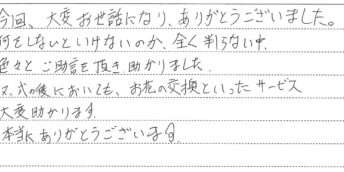 今回、大変お世話になり、ありがとうございました。
何をしないといけないのか、全く判らない中、
色々とご助言を頂き助かりました。
又、式の後においても、お花の交換といったサービス
大変助かります。
本当にありがとうございます。